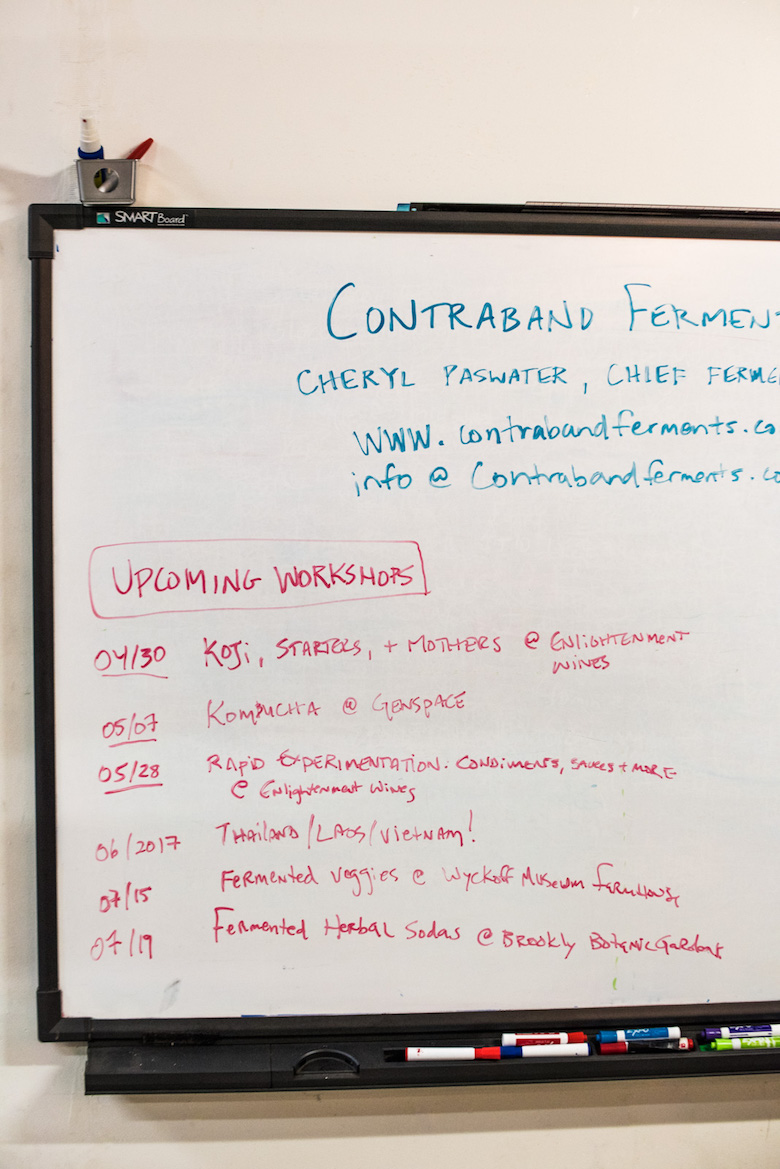 SMART Board
CONTRABAND FERMENT
CHERYL PASWATER, CHIEF FERME
WWW.contrabandferments.co
info @ Contrabandferments.co
UPCOMING WORKSHOPS
04/30 KOJI, STARTERS, + MOTHERS @ ENLIGHTENMENT
WINES
05/07 KOMBUCHA @ GENSPACE
05/28 RAPID EXPERIMENTATION. CONDIMENTS, SAUCES + MORE
@ Enlightenment Wines
06/2017 THAILAND/LAOS/VIETNAM!
07/15 Fermented Veggies @ Wyckoff Museum
07/19 Fermented Herbal Sodas @ Brookly Botanic Gardens
EXPO